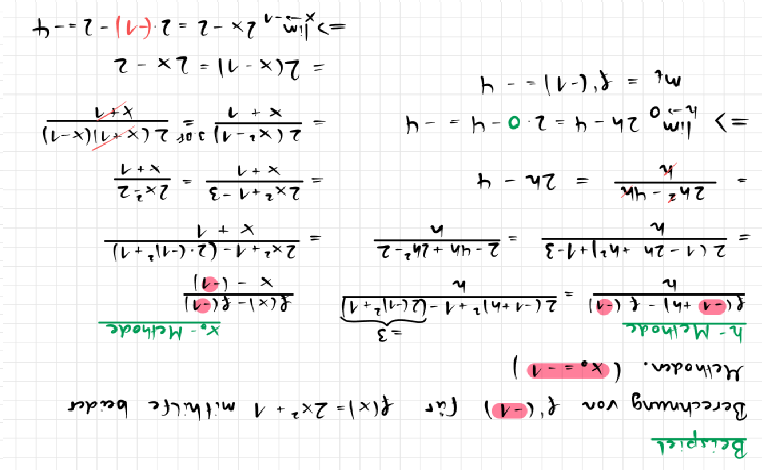 Beispiel
Berechnung von f'(-1) für f(x) = 2x² + 1 mithilfe beider
Methoden. (x₀ = -1)
h-Methode
= 3
f(-1+h) - f(-1) / h = 2(-1+h)² + 1 - (2(-1)² + 1) / h
= 2(1 - 2h + h²) + 1 - 3 / h = 2 - 4h + 2h² - 2 / h
= 2h² - 4h / h = 2h - 4
=> lim h→0 2h - 4 = 2·0 - 4 = -4
mₜ = f'(-1) = -4
x₀-Methode
f(x) - f(-1) / x - (-1)
= 2x² + 1 - (2·(-1)² + 1) / x + 1
= 2x² + 1 - 3 / x + 1 = 2x² - 2 / x + 1
= 2(x² - 1) / x + 1 3.BF = 2(x+1)(x-1) / x + 1
= 2(x - 1) = 2x - 2
=> lim x→-1 2x - 2 = 2·(-1) - 2 = -4